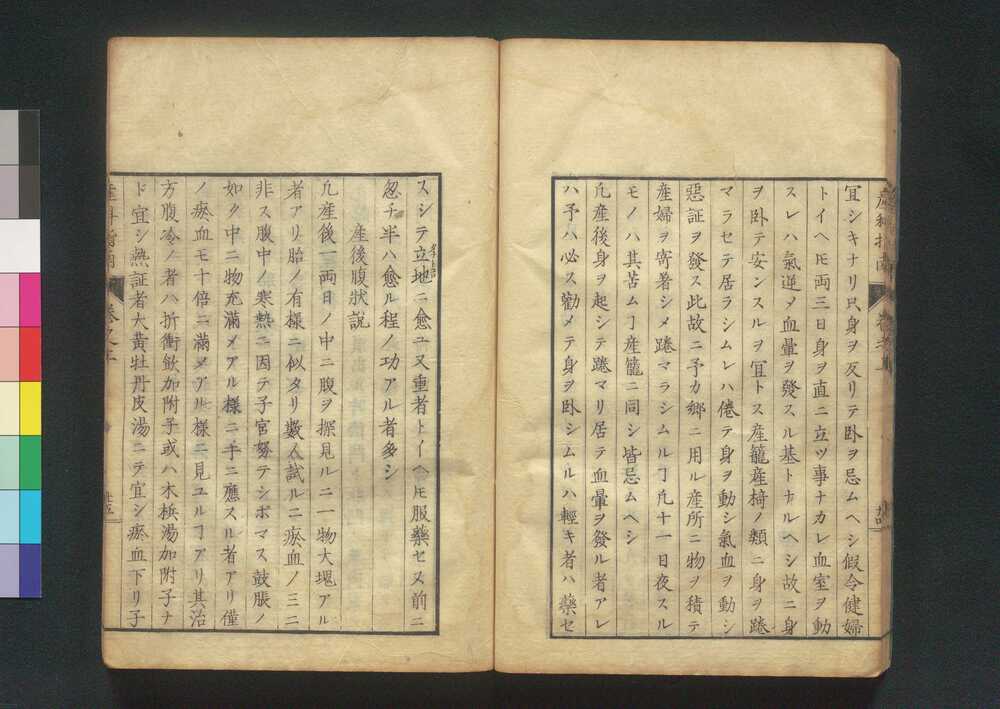 宜シキナリ只身ヲ反リテ臥ヲ忌ムヘシ假令健婦
トイヘ𪜈両三日身ヲ直ニ立ツ事ナカレ血室ヲ動
スレハ氣逆メ血暈ヲ發スル基トナルヘシ故ニ身
ヲ卧テ安ンスルヲ宜トス産籠産椅ノ類ニ身ヲ踡
マラセテ居ラシムレハ倦テ身ヲ動シ氣血ヲ動シ
惡証ヲ發ス此故ニ予カ郷ニ用ル産所ニ物ヲ積テ
産婦ヲ寄着シメ踡マラシムルヿ凢十一日夜スル
モノハ其苦ムヿ産籠ニ同シ皆忌ムヘシ
凢産後身ヲ起シテ踡マリ居テ血暈ヲ發ル者アレ
ハ予ハ必ス勸メテ身ヲ卧シムルハ輕キ者ハ藥セ
スシテ立地ニ愈ユ又重者トイヘ𪜈服藥セヌ前ニ
忽チ半ハ愈ル程ノ功アル者多シ
産後腹狀説
凢産後一両日ノ中ニ腹ヲ探見ルニ一物大塊アル
者アリ胎ノ有様ニ似タリ數人試ルニ瘀血ノミニ
非ス腹中ノ寒熱ニ因テ子宮努テシボマス鼓脹ノ
如ク中ニ物充滿メアル様ニ手ニ應スル者アリ僅
ノ瘀血モ十倍ニ滿メアル様ニ見ユルヿアリ其治
方腹冷ノ者ハ折衝飲加附子或ハ木梹湯加附子ナ
ド宜シ熱証者大黄牡丹皮湯ニテ宜シ瘀血下リ子
産科指南 巻之下